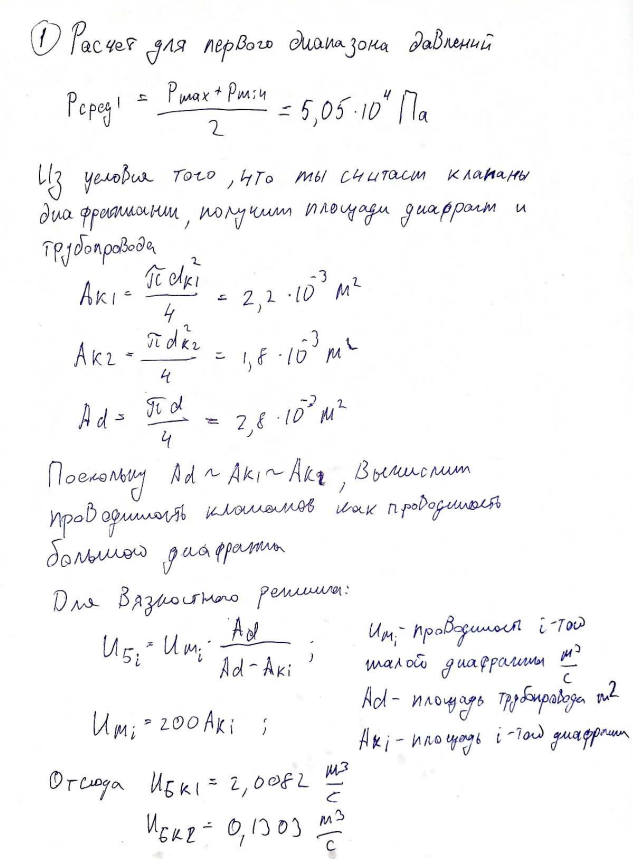 ① Расчет для первого диапазона давлений
Pсред1 = (Pmax + Pmin)/2 = 5,05·10⁴ Па
Из условия того, что мы считаем клапаны
диафрагмами, получим площади диафрагм и
трубопровода
Aк1 = πdк1²/4 = 2,2·10⁻³ м²
Aк2 = πdк2²/4 = 1,8·10⁻³ м²
Ad = πd/4 = 2,8·10⁻³ м²
Поскольку Ad ~ Aк1 ~ Aк2, Вычислим
проводимость клапанов как проводимость
большой диафрагмы
Для Вязкостного режима:
Uбi = Uмi · Ad/(Ad - Aкi) ;
Uмi = 200Aкi ;
Uмi - проводимость i-той
малой диафрагмы м³/с
Ad - площадь трубопровода м²
Aкi - площадь i-той диафрагмы
Отсюда Uбк1 = 2,0082 м³/с
Uбк2 = 0,1303 м³/с